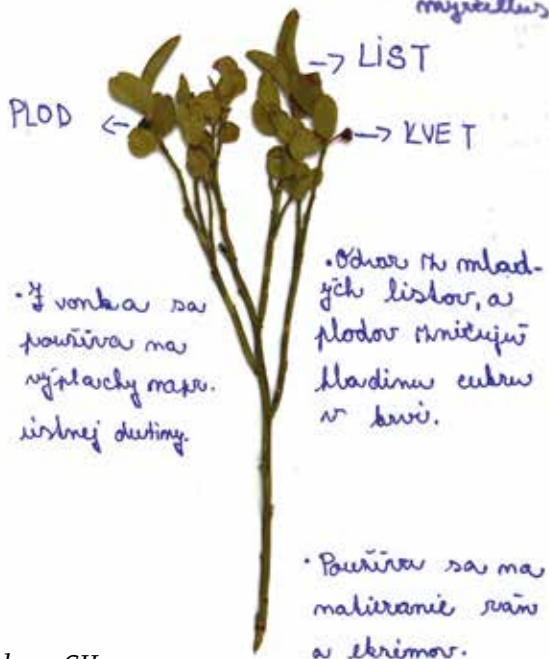 myrtillus
LIST
PLOD
KVET
• Z vonka sa
používa na
výplachy napr.
ústnej dutiny.
• Odvar z mlad-
ých listov, a
plodov znižujú
hladinu cukru
v krvi.
• Používa sa na
natieranie rán
a ekzémov.